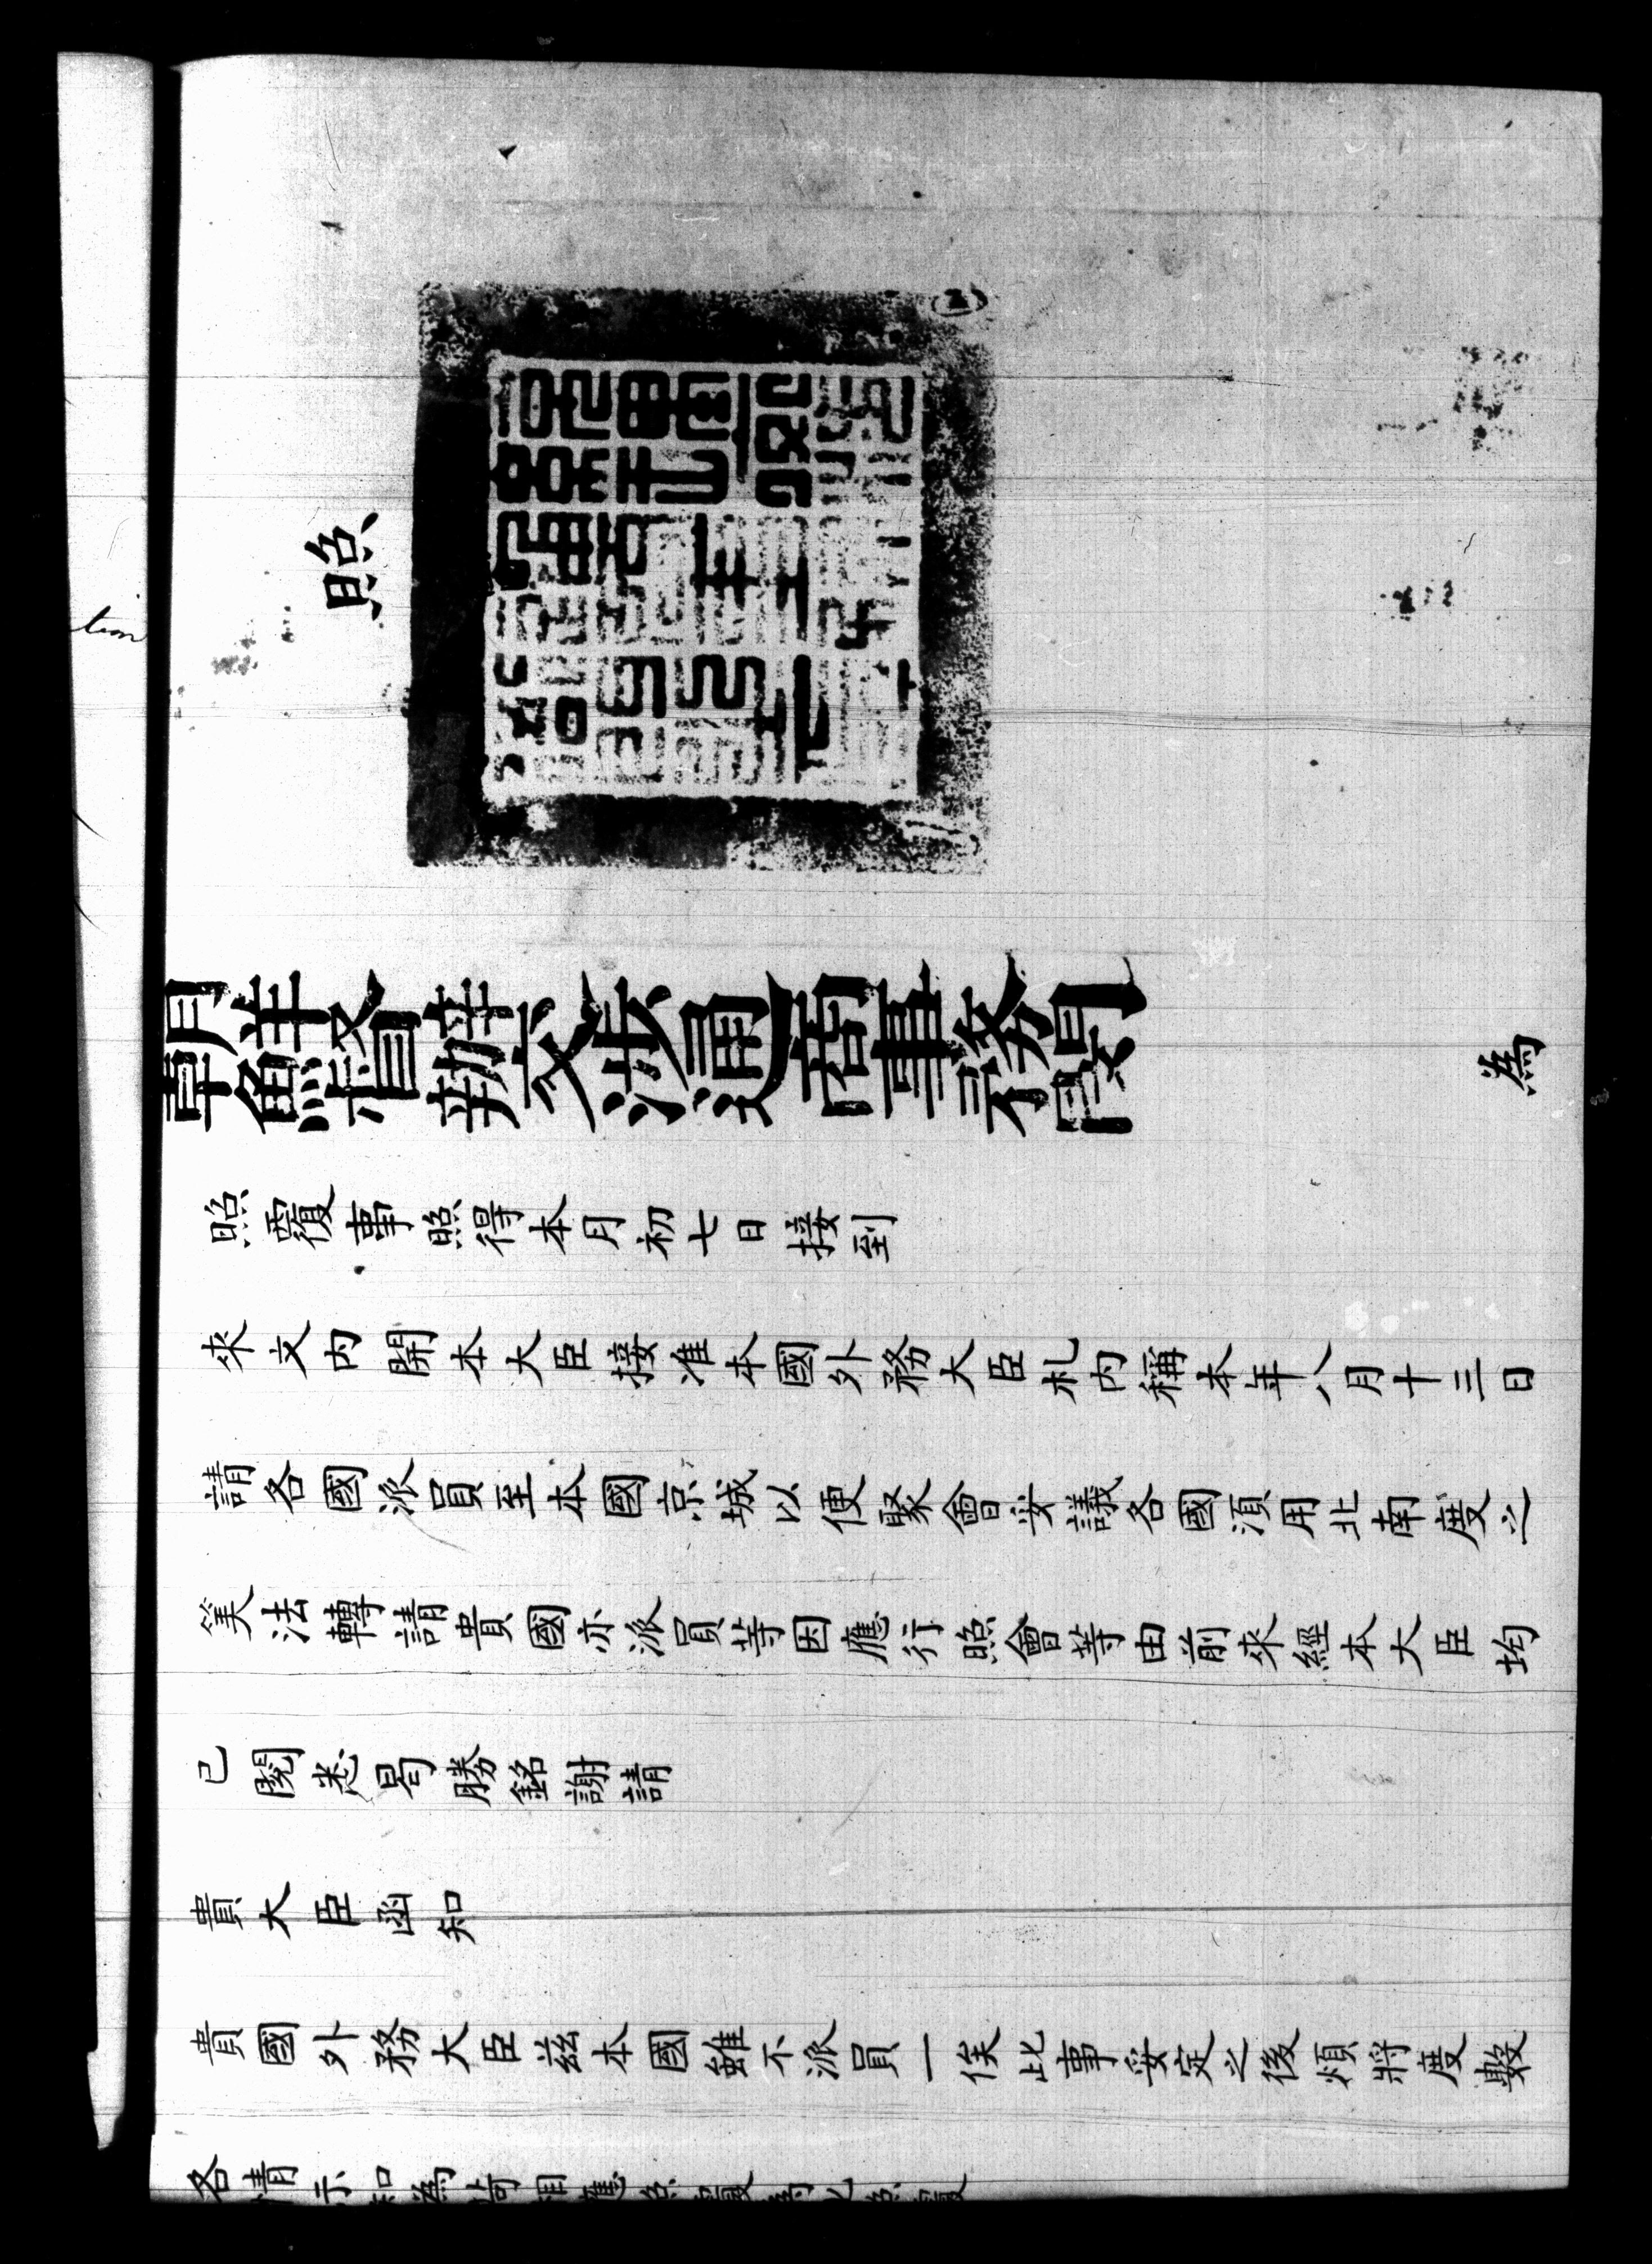 照
朝鮮督辦交涉通商事務閔 為
照覆事照得本月初七日接到
來文內開本大臣接准本國外務大臣札內稱本年八月十三日
請各國派員至本國京城以便聚會妥議各國須用北南度之
筭法轉請貴國亦派員等因應行照會等由前來經本大臣均
已閱悉曷勝銘謝請
貴大臣函知
貴國外務大臣茲本國雖不派員一俟此事妥定之後煩將度數
各情示知為荷相應照覆為此照覆
tion